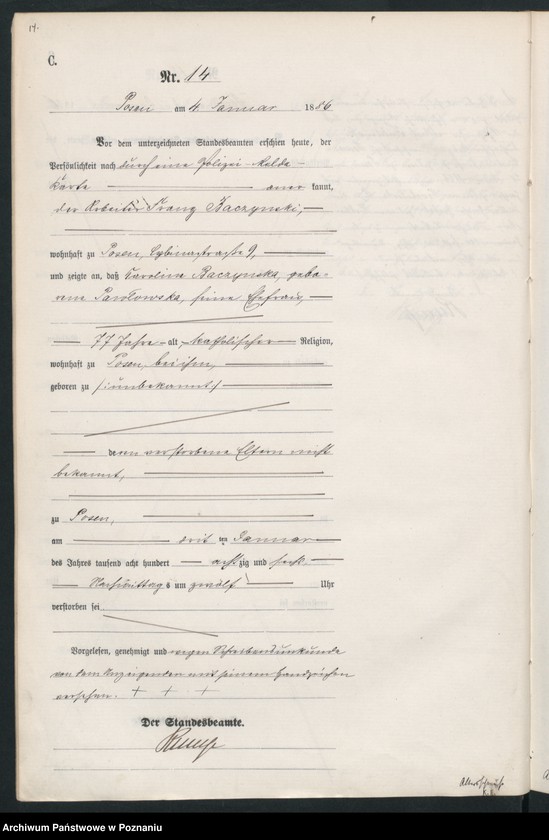 14.
C.
Nr. 14
Posen am 4. Januar 1886
Vor dem unterzeichneten Standesbeamten erschien heute, der
Persönlichkeit nach durch eine Polizei-Melde-
Karte anerkannt,
der Arbeiter Franz Baczynski,
wohnhaft zu Posen, Cybinastraße 9,
und zeigte an, daß Karolina Baczynska, gebo-
rene Pawlowska, seine Ehefrau,
77 Jahre alt, katholischer Religion,
wohnhaft zu Posen, bei ihm,
geboren zu /: unbekannt /
deren verstorbene Eltern nicht
bekannt,
zu Posen,
am drit ten Januar
des Jahres tausend acht hundert achtzig und sechs
Nachmittags um zwölf Uhr
verstorben sei
Vorgelesen, genehmigt und wegen Schreibensunkunde
von dem Anzeigenden mit seinem Handzeichen
versehen. + + +
Der Standesbeamte.
Altersschwäche
Archiwum Państwowe w Poznaniu